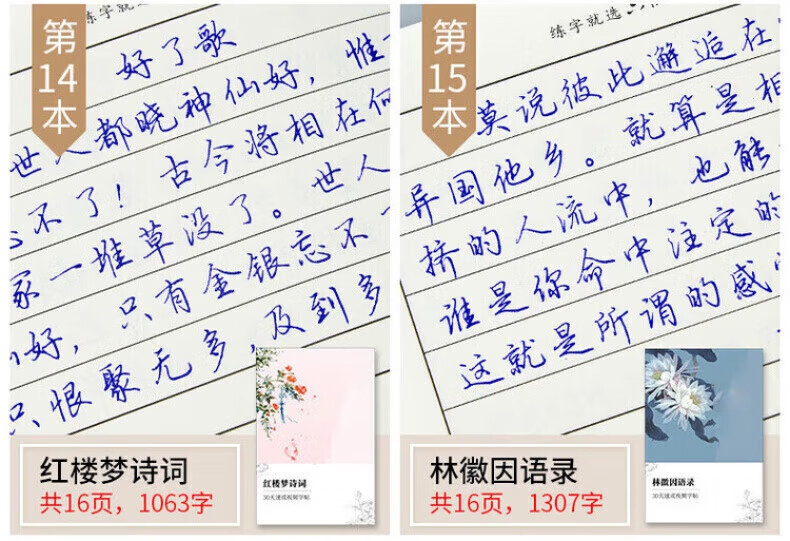 第
14
本
练字就选
好了歌
世人都晓神仙好，惟
不了！古今将相在何
冢一堆草没了。世人
好，只有金银忘不
只恨聚无多，及到多
红楼梦诗词
共16页，1063字
红楼梦诗词
30天速成视频字帖
第
15
本
练字就选
莫说彼此邂逅在
异国他乡。就算是相
挤的人流中，也能
谁是你命中注定的
这就是所谓的感
林徽因语录
共16页，1307字
林徽因语录
30天速成视频字帖